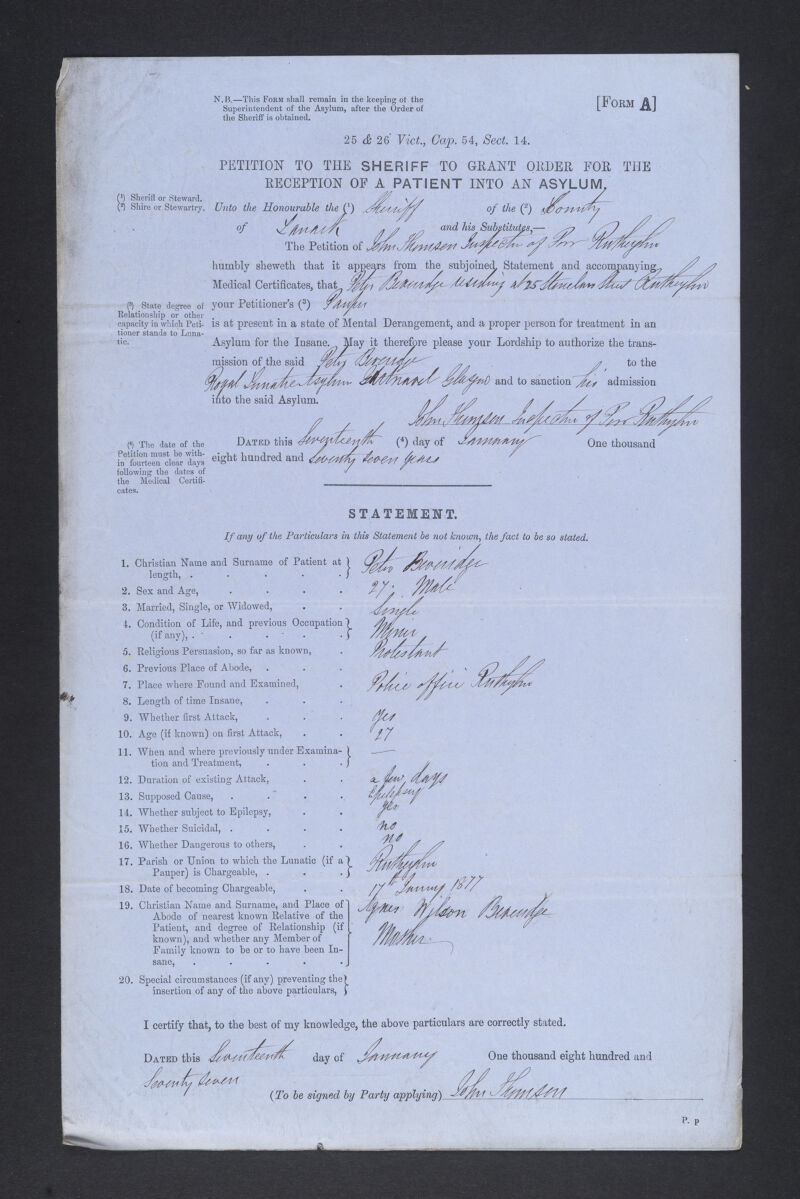 N.B.—This Form shall remain in the keeping of the
Superintendent of the Asylum, after the Order of
the Sheriff is obtained.
[Form A]
25 & 26 Vict., Cap. 54, Sect. 14.
PETITION TO THE SHERIFF TO GRANT ORDER FOR THE
RECEPTION OF A PATIENT INTO AN ASYLUM.
(¹) Sheriff or Steward.
(²) Shire or Stewartry.
Unto the Honourable the (¹) Sheriff of the (²) County
of Lanark and his Substitutes,—
The Petition of John Thomson Inspector of Poor Rutherglen
humbly sheweth that it appears from the subjoined Statement and accompanying
Medical Certificates, that Peter Beveridge residing at 25 Rutherglen
(³) State degree of
Relationship or other
capacity in which Peti-
tioner stands to Luna-
tic.
your Petitioner's (³) Pauper
is at present in a state of Mental Derangement, and a proper person for treatment in an
Asylum for the Insane. May it therefore please your Lordship to authorize the trans-
mission of the said Peter Beveridge to the
Royal Lunatic Asylum Gartnavel Glasgow and to sanction his admission
into the said Asylum.
John Thomson Inspector of Poor Rutherglen
(⁴) The date of the
Petition must be with-
in fourteen clear days
following the dates of
the Medical Certifi-
cates.
Dated this Seventeenth (⁴) day of January One thousand
eight hundred and seventy seven years
STATEMENT.
If any of the Particulars in this Statement be not known, the fact to be so stated.
1. Christian Name and Surname of Patient at
length, . . . . . Peter Beveridge
2. Sex and Age, . . . . 27. Male
3. Married, Single, or Widowed, . . Single
4. Condition of Life, and previous Occupation
(if any), . . . . . Miner
5. Religious Persuasion, so far as known, . Protestant
6. Previous Place of Abode, . . .
7. Place where Found and Examined, . Police office Rutherglen
8. Length of time Insane, . . .
9. Whether first Attack, . . . Yes
10. Age (if known) on first Attack, . . 27
11. When and where previously under Examina-
tion and Treatment, . . . —
12. Duration of existing Attack, . . a few days
13. Supposed Cause, . . . . Epilepsy
14. Whether subject to Epilepsy, . . yes
15. Whether Suicidal, . . . . no
16. Whether Dangerous to others, . . no
17. Parish or Union to which the Lunatic (if a
Pauper) is Chargeable, . . . Rutherglen
18. Date of becoming Chargeable, . . 17th January 1877
19. Christian Name and Surname, and Place of
Abode of nearest known Relative of the
Patient, and degree of Relationship (if
known), and whether any Member of
Family known to be or to have been In-
sane, . . . . .
Agnes Wilson Beveridge
Mother
20. Special circumstances (if any) preventing the
insertion of any of the above particulars,
I certify that, to the best of my knowledge, the above particulars are correctly stated.
Dated this Seventeenth day of January One thousand eight hundred and
Seventy Seven
(To be signed by Party applying) John Thomson
P. P